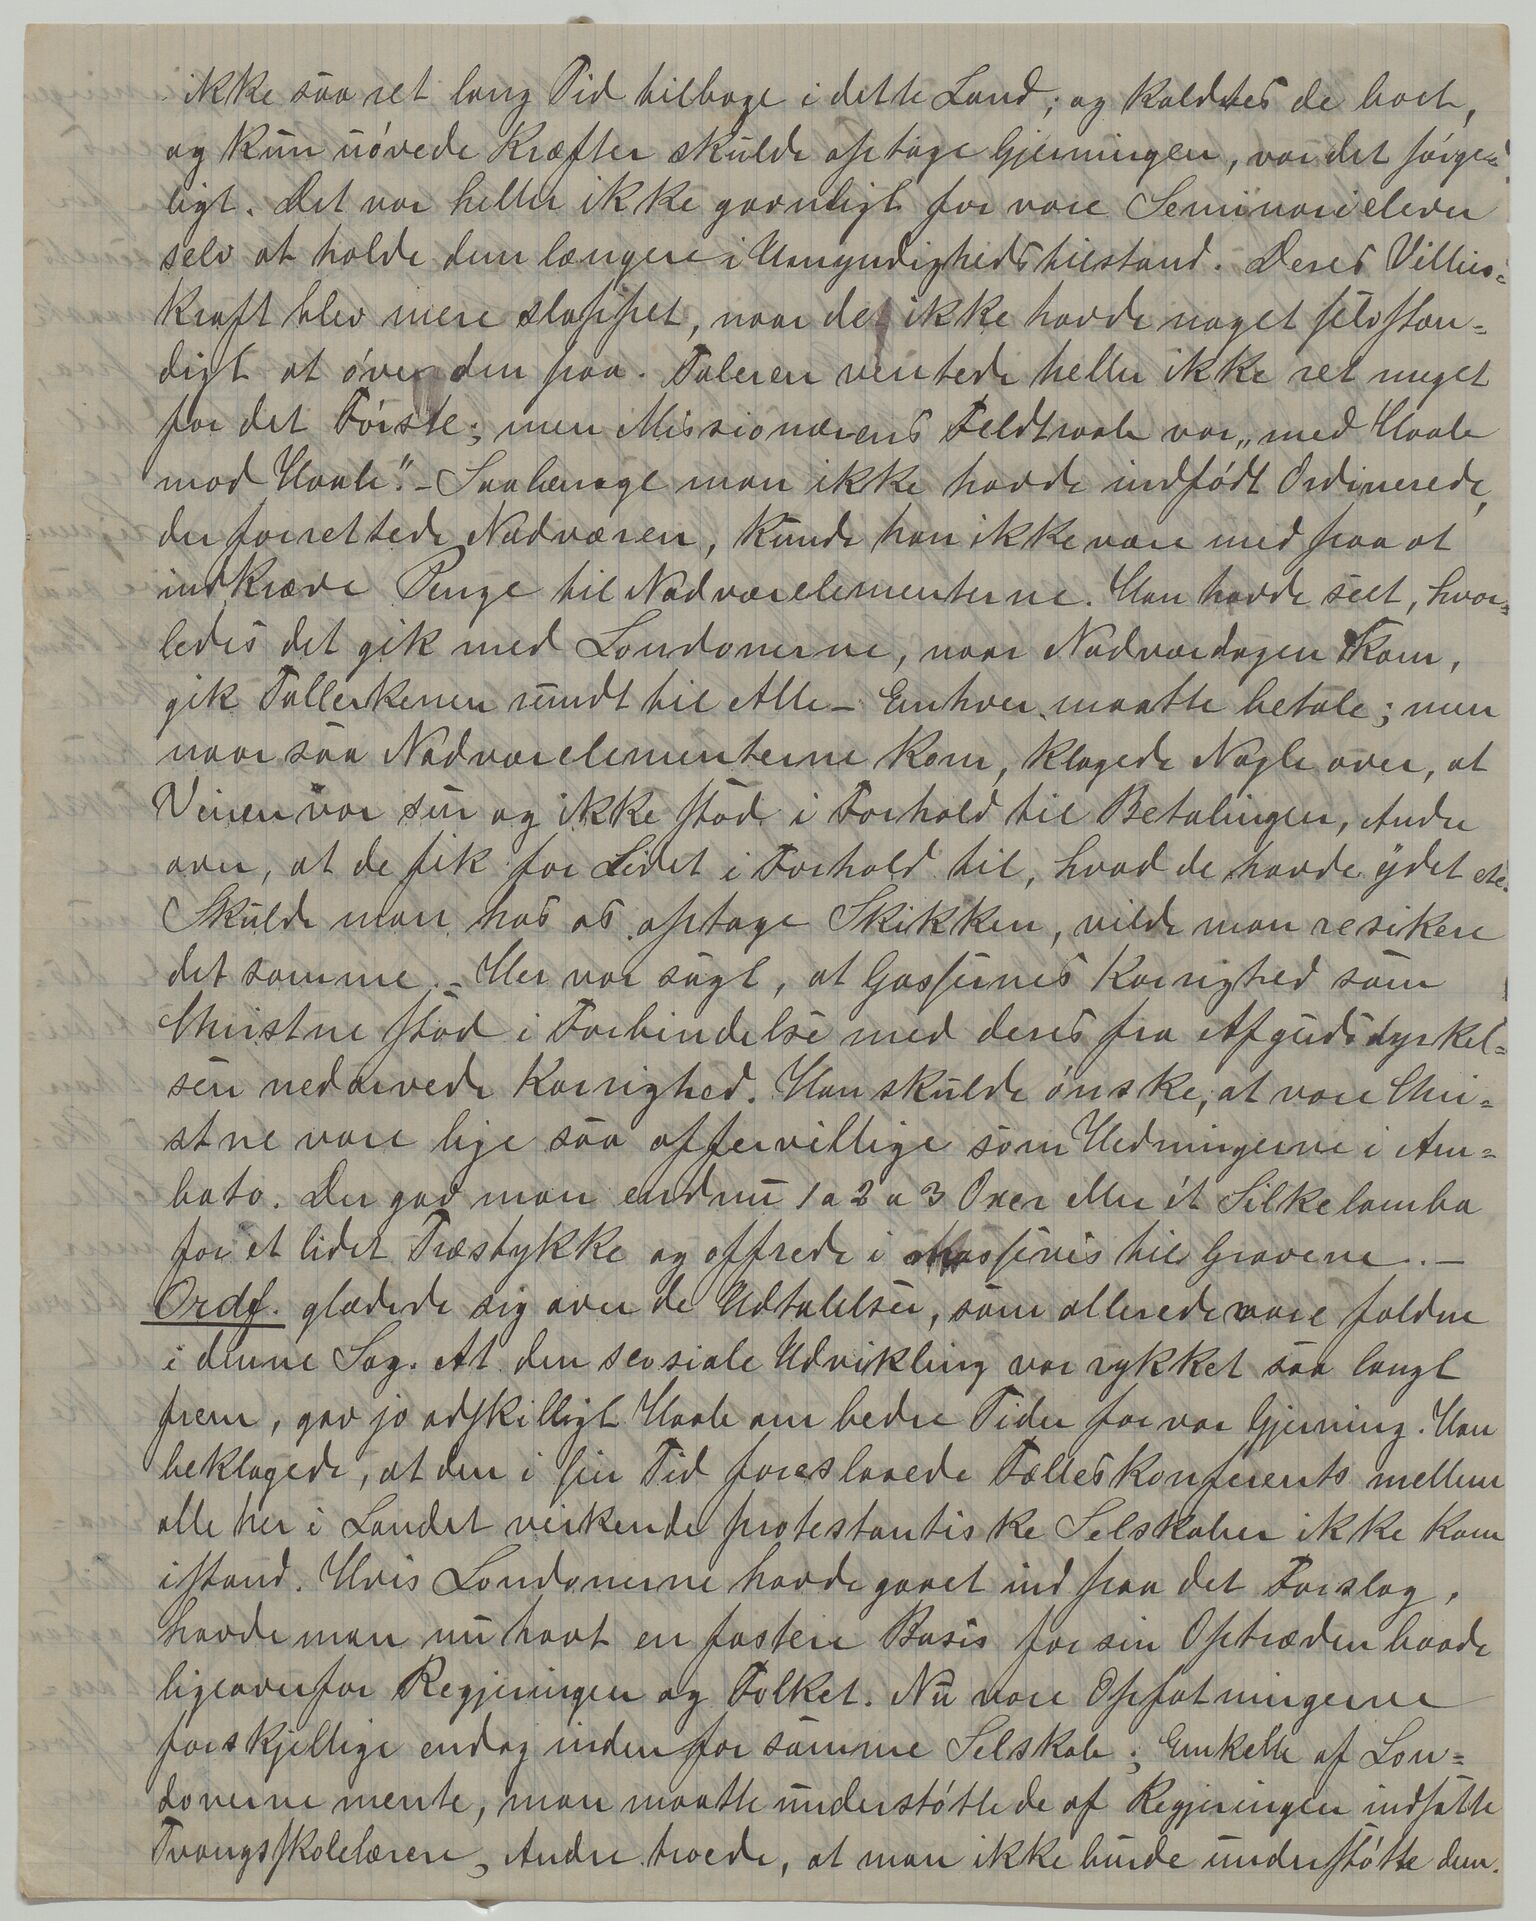 ikke saa ret lang Tid tilbage i dette Land; og kaldtes de bort,
og kun uövede Kræfter skulde optage Gjerningen, var det sörge=
ligt. Det var heller ikke gavnligt for vore Seminarielever
selv at holde dem længere i Umyndighedstilstand. Deres Villies=
kraft blev mere slappet, naar de ikke havde noget selvstæn=
digt at öve den paa. Taleren ventede heller ikke ret meget
for det Förste; men Missionærens Feldtraab var „med Haab
mod Haab". – Saalænge man ikke havde indfödt Ordinerede,
der forrettede Nadveren, kunde han ikke være med paa at
indkræve Penge til Nadverelementerne. Han havde seet, hvor=
ledes det gik med Londonerne, naar Nadverdagen kom,
gik Tallerkenen rundt til Alle – Enhver maatte betale; men
naar saa Nadverelementerne kom, klagede Nogle over, at
Vinen var sur og ikke stod i Forhold til Betalingen, Andre
over, at de fik for Lidet i Forhold til, hvad de havde ydet etc.
Skulde man hos os optage Skikken, vilde man resikere
det samme. – Her var sagt, at Gassernes Karrighed som
Christne stod i Forbindelse med deres fra Afgudsdyrkel=
sen nedarvede Karrighed. Han skulde önske, at vore Chri=
stne vare lige saa offervillige som Hedningerne i Am=
bato. Der gav man endnu 1 a 2 a 3 Oxer eller ét Silkelamba
for et lidet Træstykke og offrede i Massevis til Gravene. –
Ordf. glædede sig over de Udtalelser, som allerede vare faldne
i denne Sag. At den sosiale Udvikling var rykket saa langt
frem, gav jo adskilligt Haab om bedre Tider for vor Gjerning. Han
beklagede, at den i sin Tid foreslaaede Fælleskonferents mellem
alle her i Landet virkende protestantiske Selskaber ikke kom
istand. Hvis Londonerne havde gaaet ind paa det Forslag,
havde man nu havt en fastere Basis for sin Optræden baade
ligeoverfor Regjeringen og Folket. Nu vare Opfatningerne
forskjellige endog inden for samme Selskab; Enkelte af Lon=
donerne mente, man maatte understötte de af Regjeringen indsatte
Tvangsskolelærere, Andre troede, at man ikke burde understötte dem.